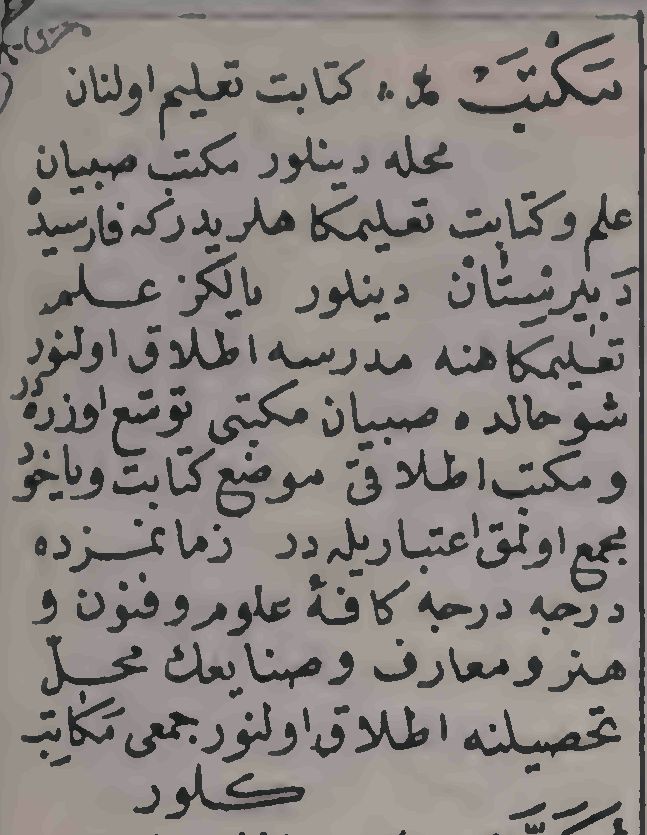 مَكْتَبْ مذ: كتابت تعليم اولنان
محله دينلور مكتب صبيان
علم وكتابت تعليمكاهلريدركه فارسيده
دَبيرِسْتانْ دينلور يالكز علم
تعليمكاهنه مدرسه اطلاق اولنور
شو حالده صبيان مكتبى توسع اوزره در
ومكتب اطلاق موضع كتابت وياخود
مجمع اولمق اعتباريله در زمانمزده
درجه درجه كافهٔ علوم وفنون و
هنر ومعارف وصنايعك محلّ
تحصيلنه اطلاق اولنور جمعى مَكاتِب
كلور